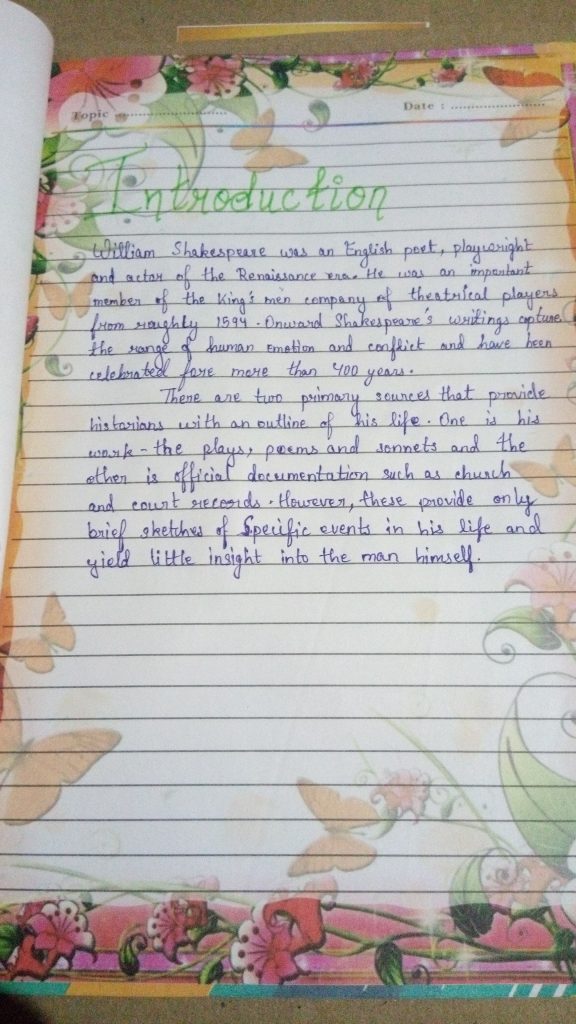 Topic ........................
Date : ........................
Introduction
William Shakespeare was an English poet, playwright
and actor of the Renaissance era. He was an important
member of the King's men company of theatrical players
from roughly 1594. Onward Shakespeare's writings capture
the range of human emotion and conflict and have been
celebrated fore more than 400 years.
There are two primary sources that provide
historians with an outline of his life. One is his
work - the plays, poems and sonnets and the
other is official documentation such as church
and court records. However, these provide only
brief sketches of specific events in his life and
yield little insight into the man himself.